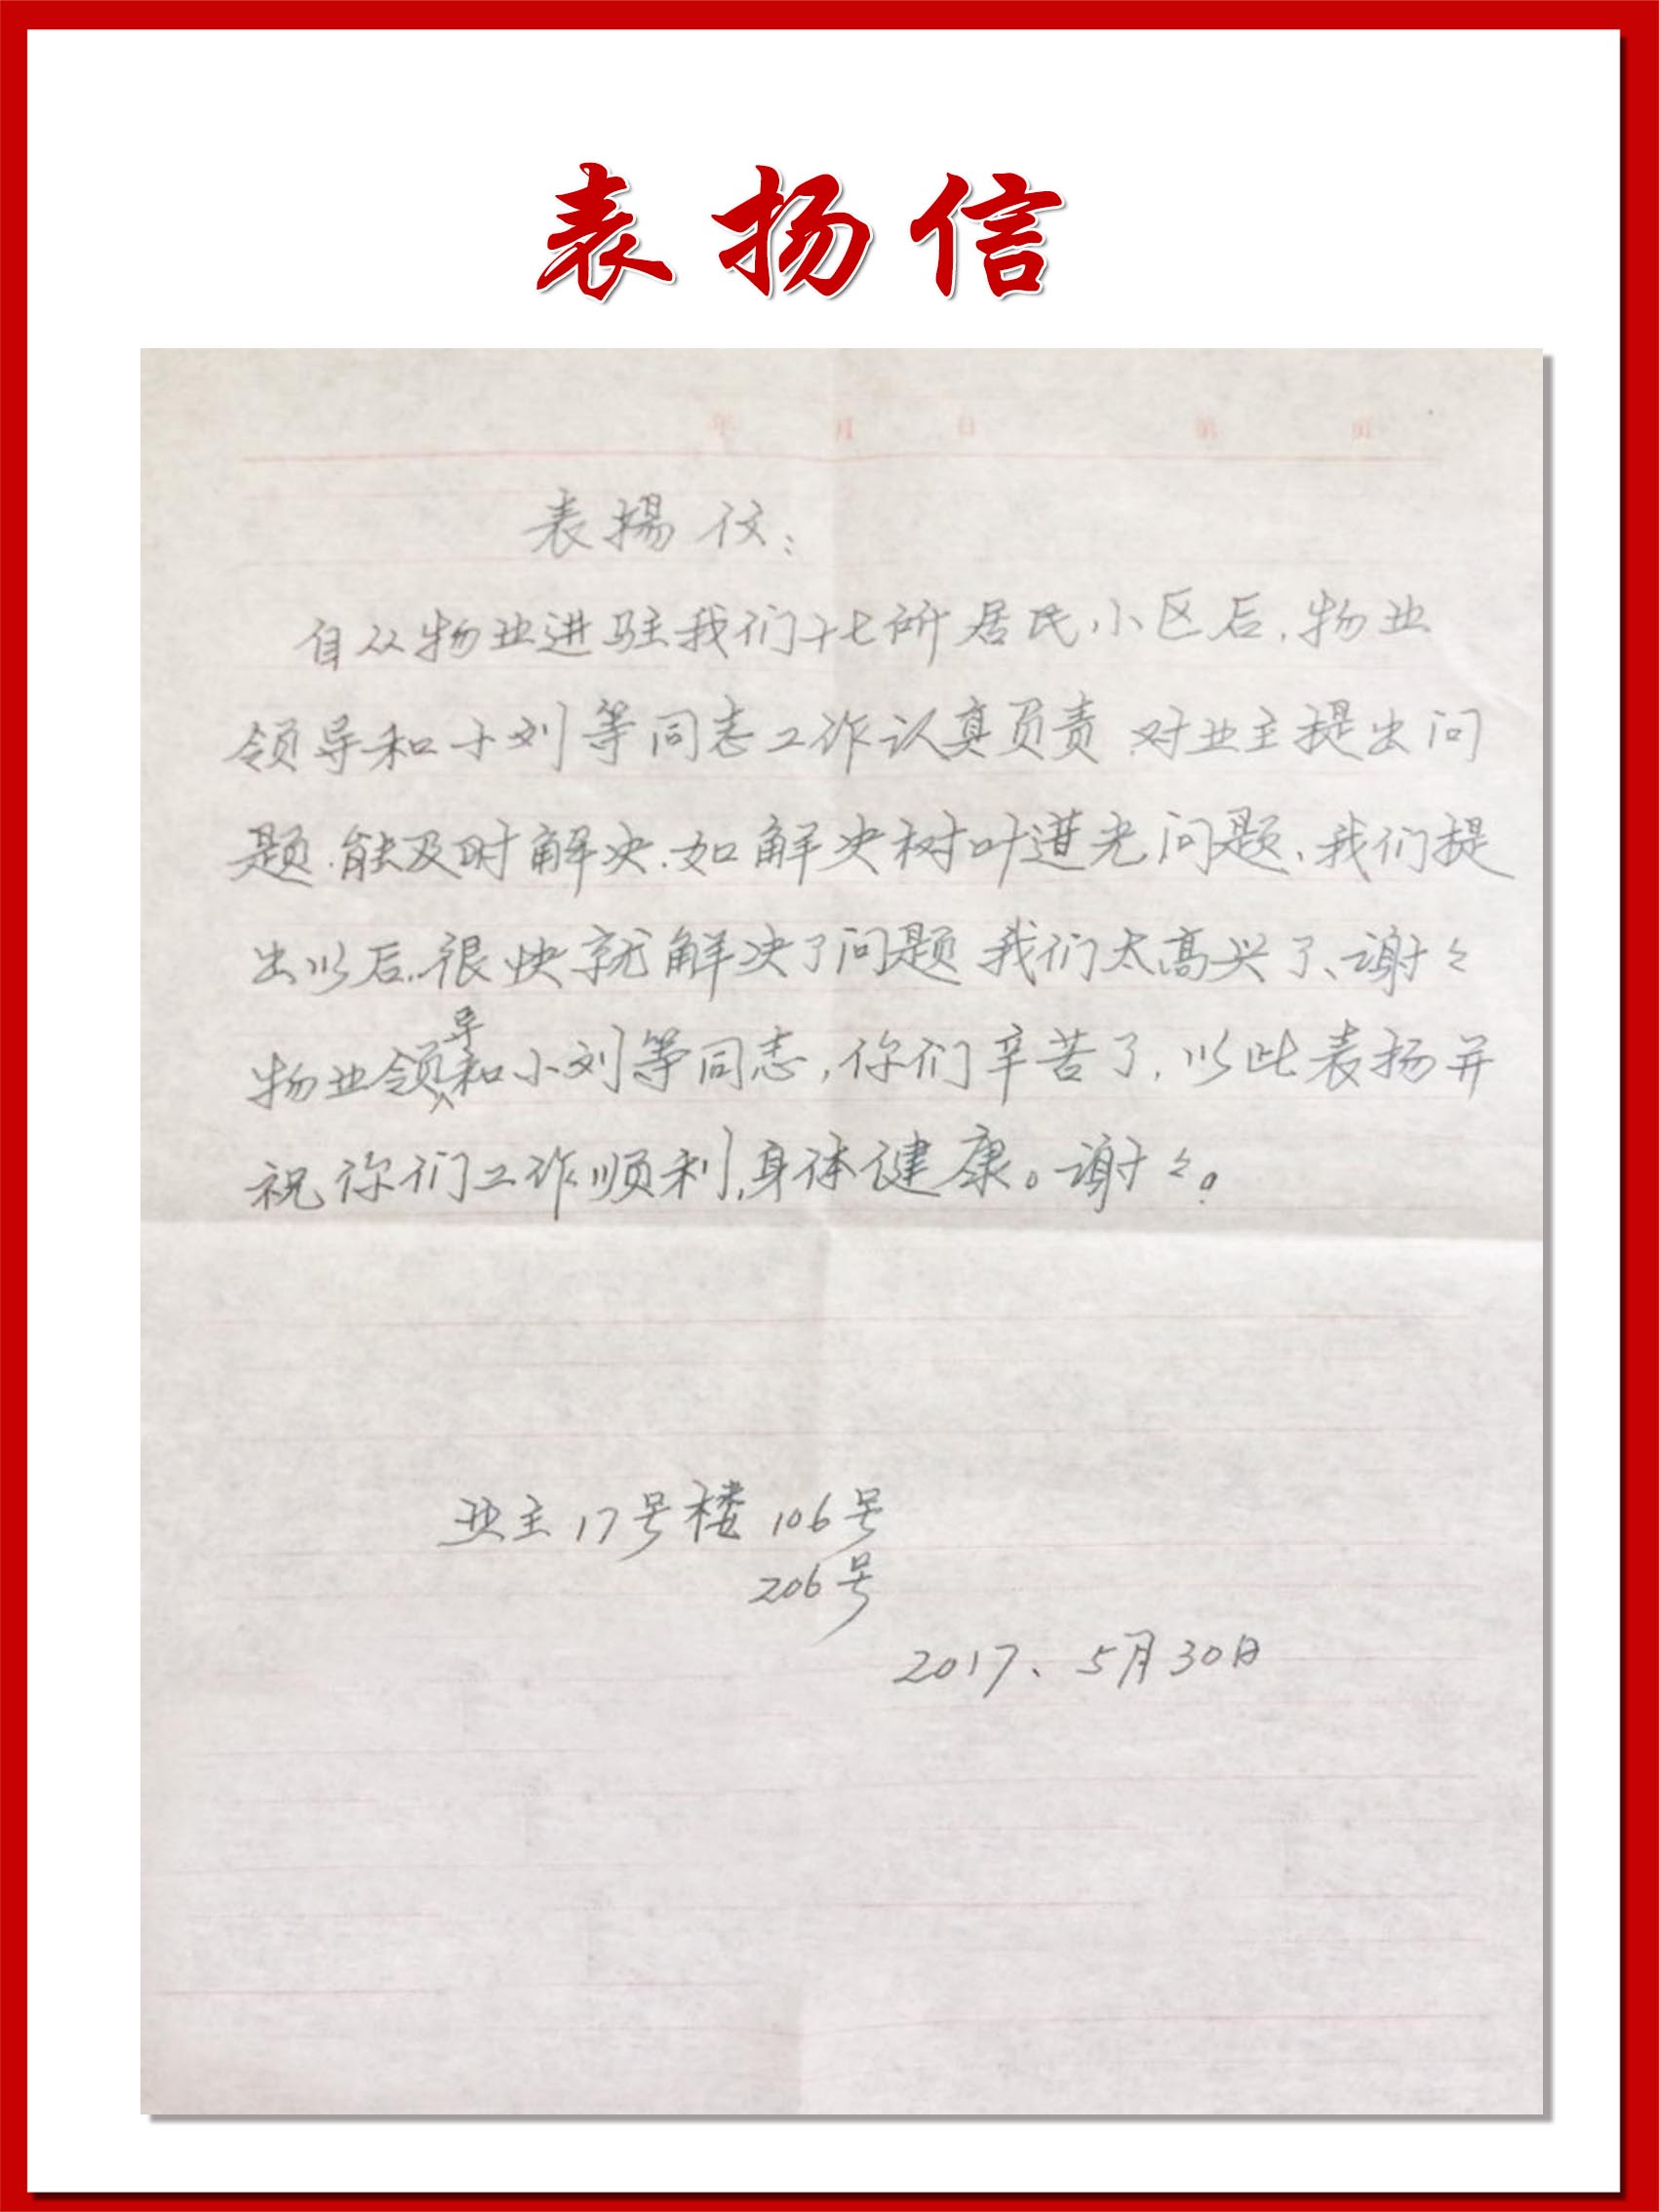 表扬信
年 月 日 第 页
表揚仪:
自从物业进驻我们十七所居民小区后,物业
领导和小刘等同志工作认真负责 对业主提出问
题.能及时解决.如解决树叶遮光问题、我们提
出以后.很快就解决了问题 我们太高兴了、谢々
物业领导和小刘等同志,你们辛苦了,以此表扬并
祝你们工作顺利,身体健康。谢々。
业主17号楼 106号
206号
2017、5月30日